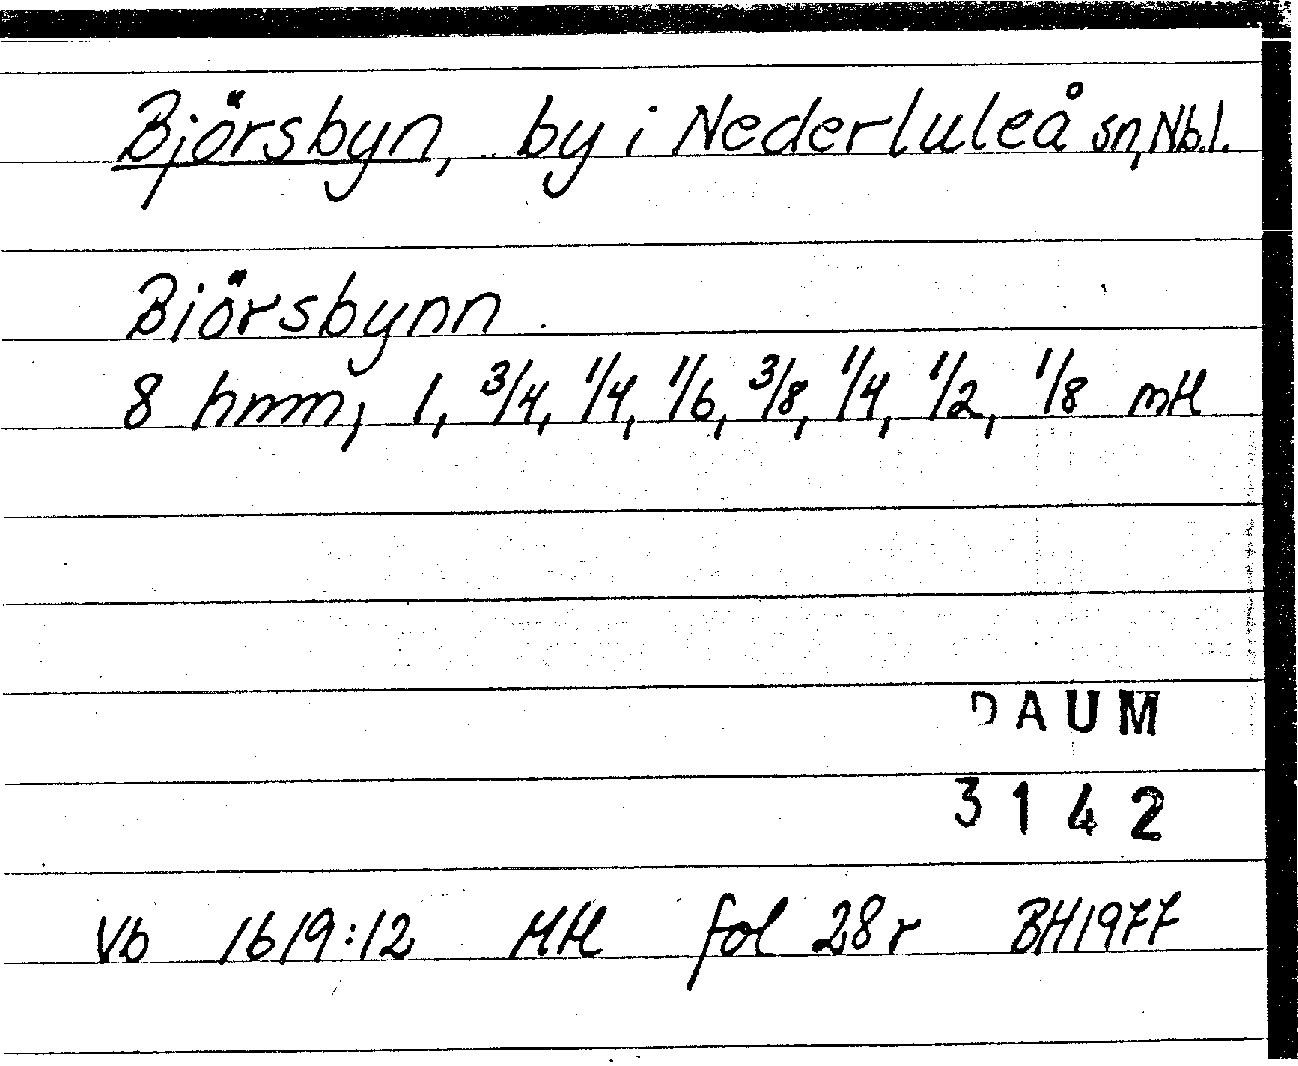 Björsbyn, by i Nederluleå sn, Nb.l.
Biörsbynn
8 hmm, 1, 3/4, 1/4, 1/6, 3/8, 1/4, 1/2, 1/8 mtl
DAUM
3142
Vb 1619:12 Mtl fol 28r BH1977